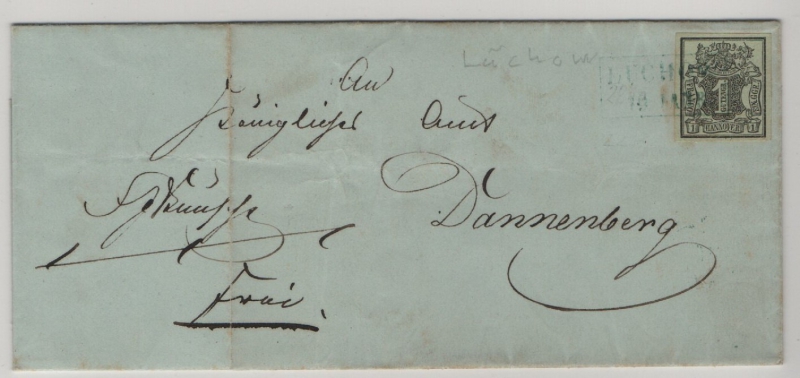 Lüchow
LÜCHOW
1 HANNOVER 1
An
Königliches Amt
Dannenberg
Frei.